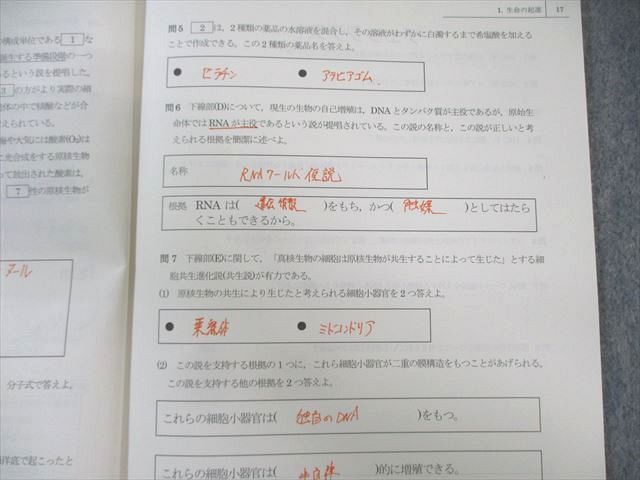 1. 生命の起源 17
の構成単位である 1 な
発生する準備段階の一つ
るという説を提唱した。
3 の方がより実際の細
胞体の中で核酸などが合
考えられている。
海や大気には酸素(O₂)は
に光合成をする原核生物
って放出された酸素は,
7 性の原核生物が
ヌール
分子式で答えよ。
洋底で起こったと
問5 2 は,2種類の薬品の水溶液を混合し,その溶液がわずかに白濁するまで希塩酸を加える
ことで作成できる。この2種類の薬品名を答えよ。
● ゼラチン ● アラビアゴム
問6 下線部(D)について,現生の生物の自己増殖は,DNAとタンパク質が主役であるが,原始生
命体ではRNAが主役であるという説が提唱されている。この説の名称と,この説が正しいと考
えられる根拠を簡潔に述べよ。
名称 RNAワールド仮説
根拠 RNA は( 遺伝情報 )をもち,かつ( 触媒 )としてはたら
くこともできるから。
問7 下線部(E)に関して,「真核生物の細胞は原核生物が共生することによって生じた」とする細
胞共生進化説(共生説)が有力である。
(1) 原核生物の共生により生じたと考えられる細胞小器官を2つ答えよ。
● 葉緑体 ● ミトコンドリア
(2) この説を支持する根拠の1つに,これら細胞小器官が二重の膜構造をもつことがあげられる。
この説を支持する他の根拠を2つ答えよ。
これらの細胞小器官は( 独自のDNA )をもつ。
これらの細胞小器官は( )的に増殖できる。